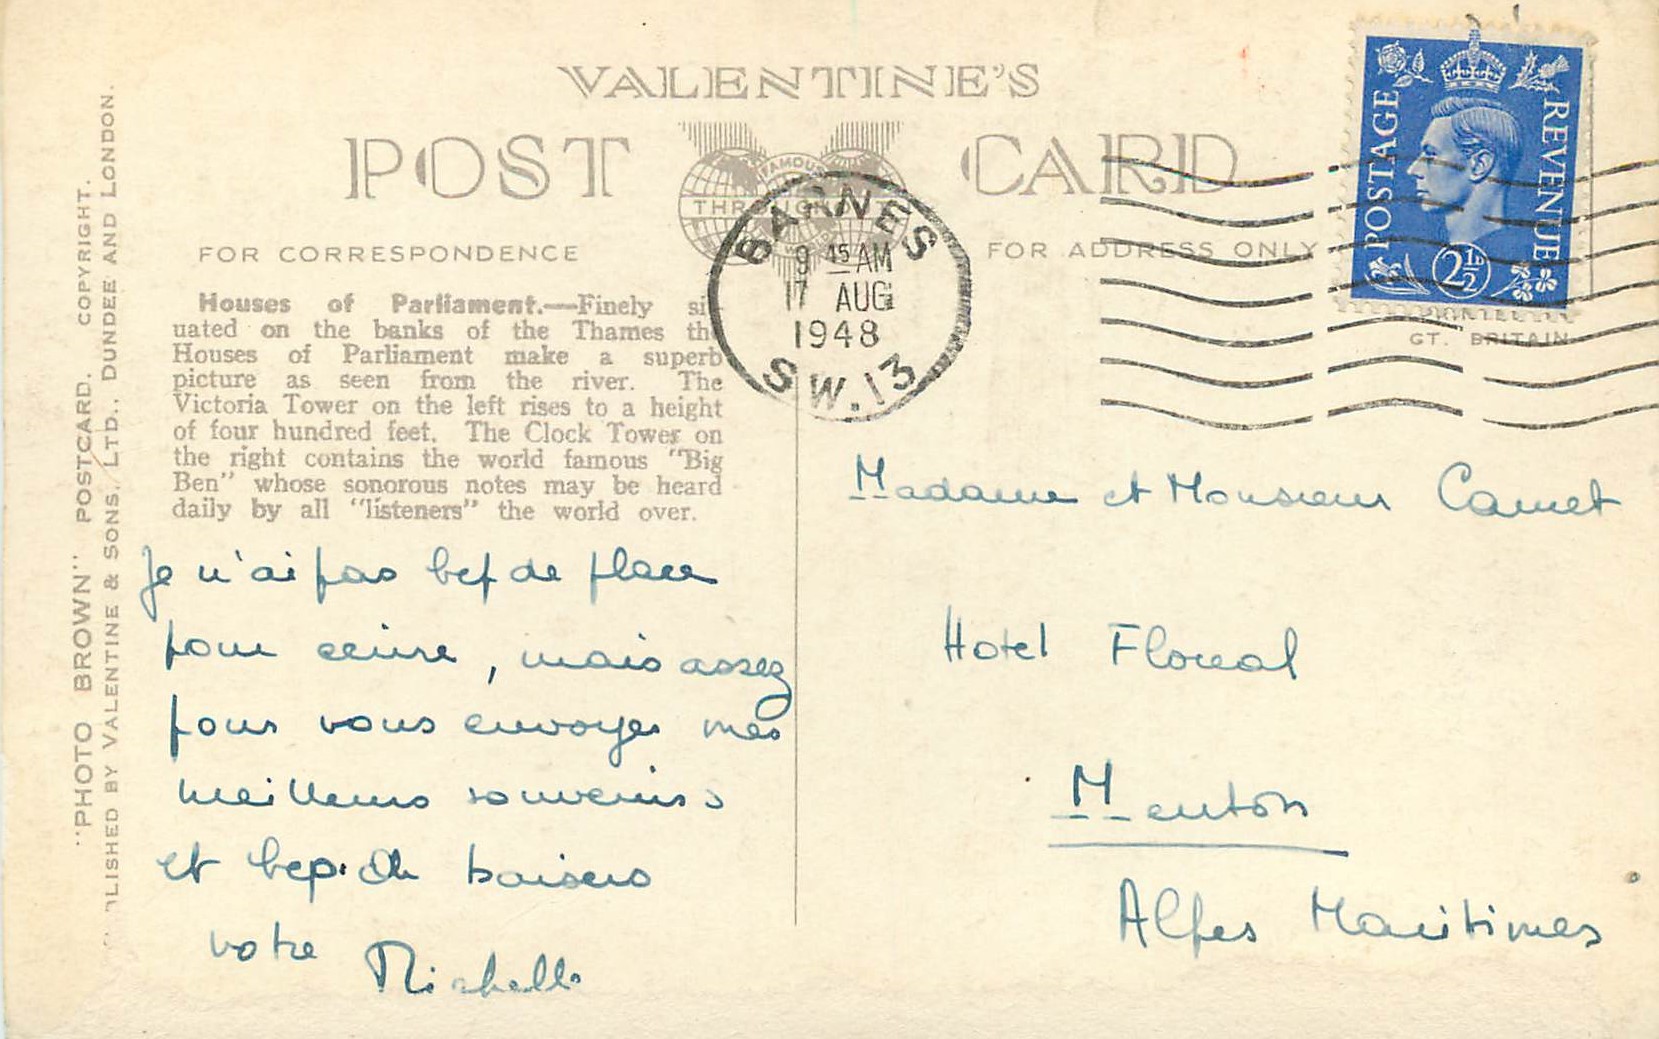 VALENTINE'S
POST CARD
FAMOUS
THROUGHOUT
FOR CORRESPONDENCE
FOR ADDRESS ONLY
Houses of Parliament.—Finely sit-
uated on the banks of the Thames the
Houses of Parliament make a superb
picture as seen from the river. The
Victoria Tower on the left rises to a height
of four hundred feet. The Clock Tower on
the right contains the world famous "Big
Ben" whose sonorous notes may be heard
daily by all "listeners" the world over.
"PHOTO BROWN" POSTCARD. COPYRIGHT.
LISHED BY VALENTINE & SONS, LTD., DUNDEE AND LONDON.
BARNES
9 45 AM
17 AUG
1948
S.W.13
POSTAGE
REVENUE
2½D
PRINTED IN
GT. BRITAIN
Je n'ai pas bcp de place
pour écrire, mais assez
pour vous envoyer mes
meilleurs souvenirs
et bcp. de baisers
votre Michelle
Madame et Monsieur Camet
Hotel Floreal
Menton
Alpes Maritimes